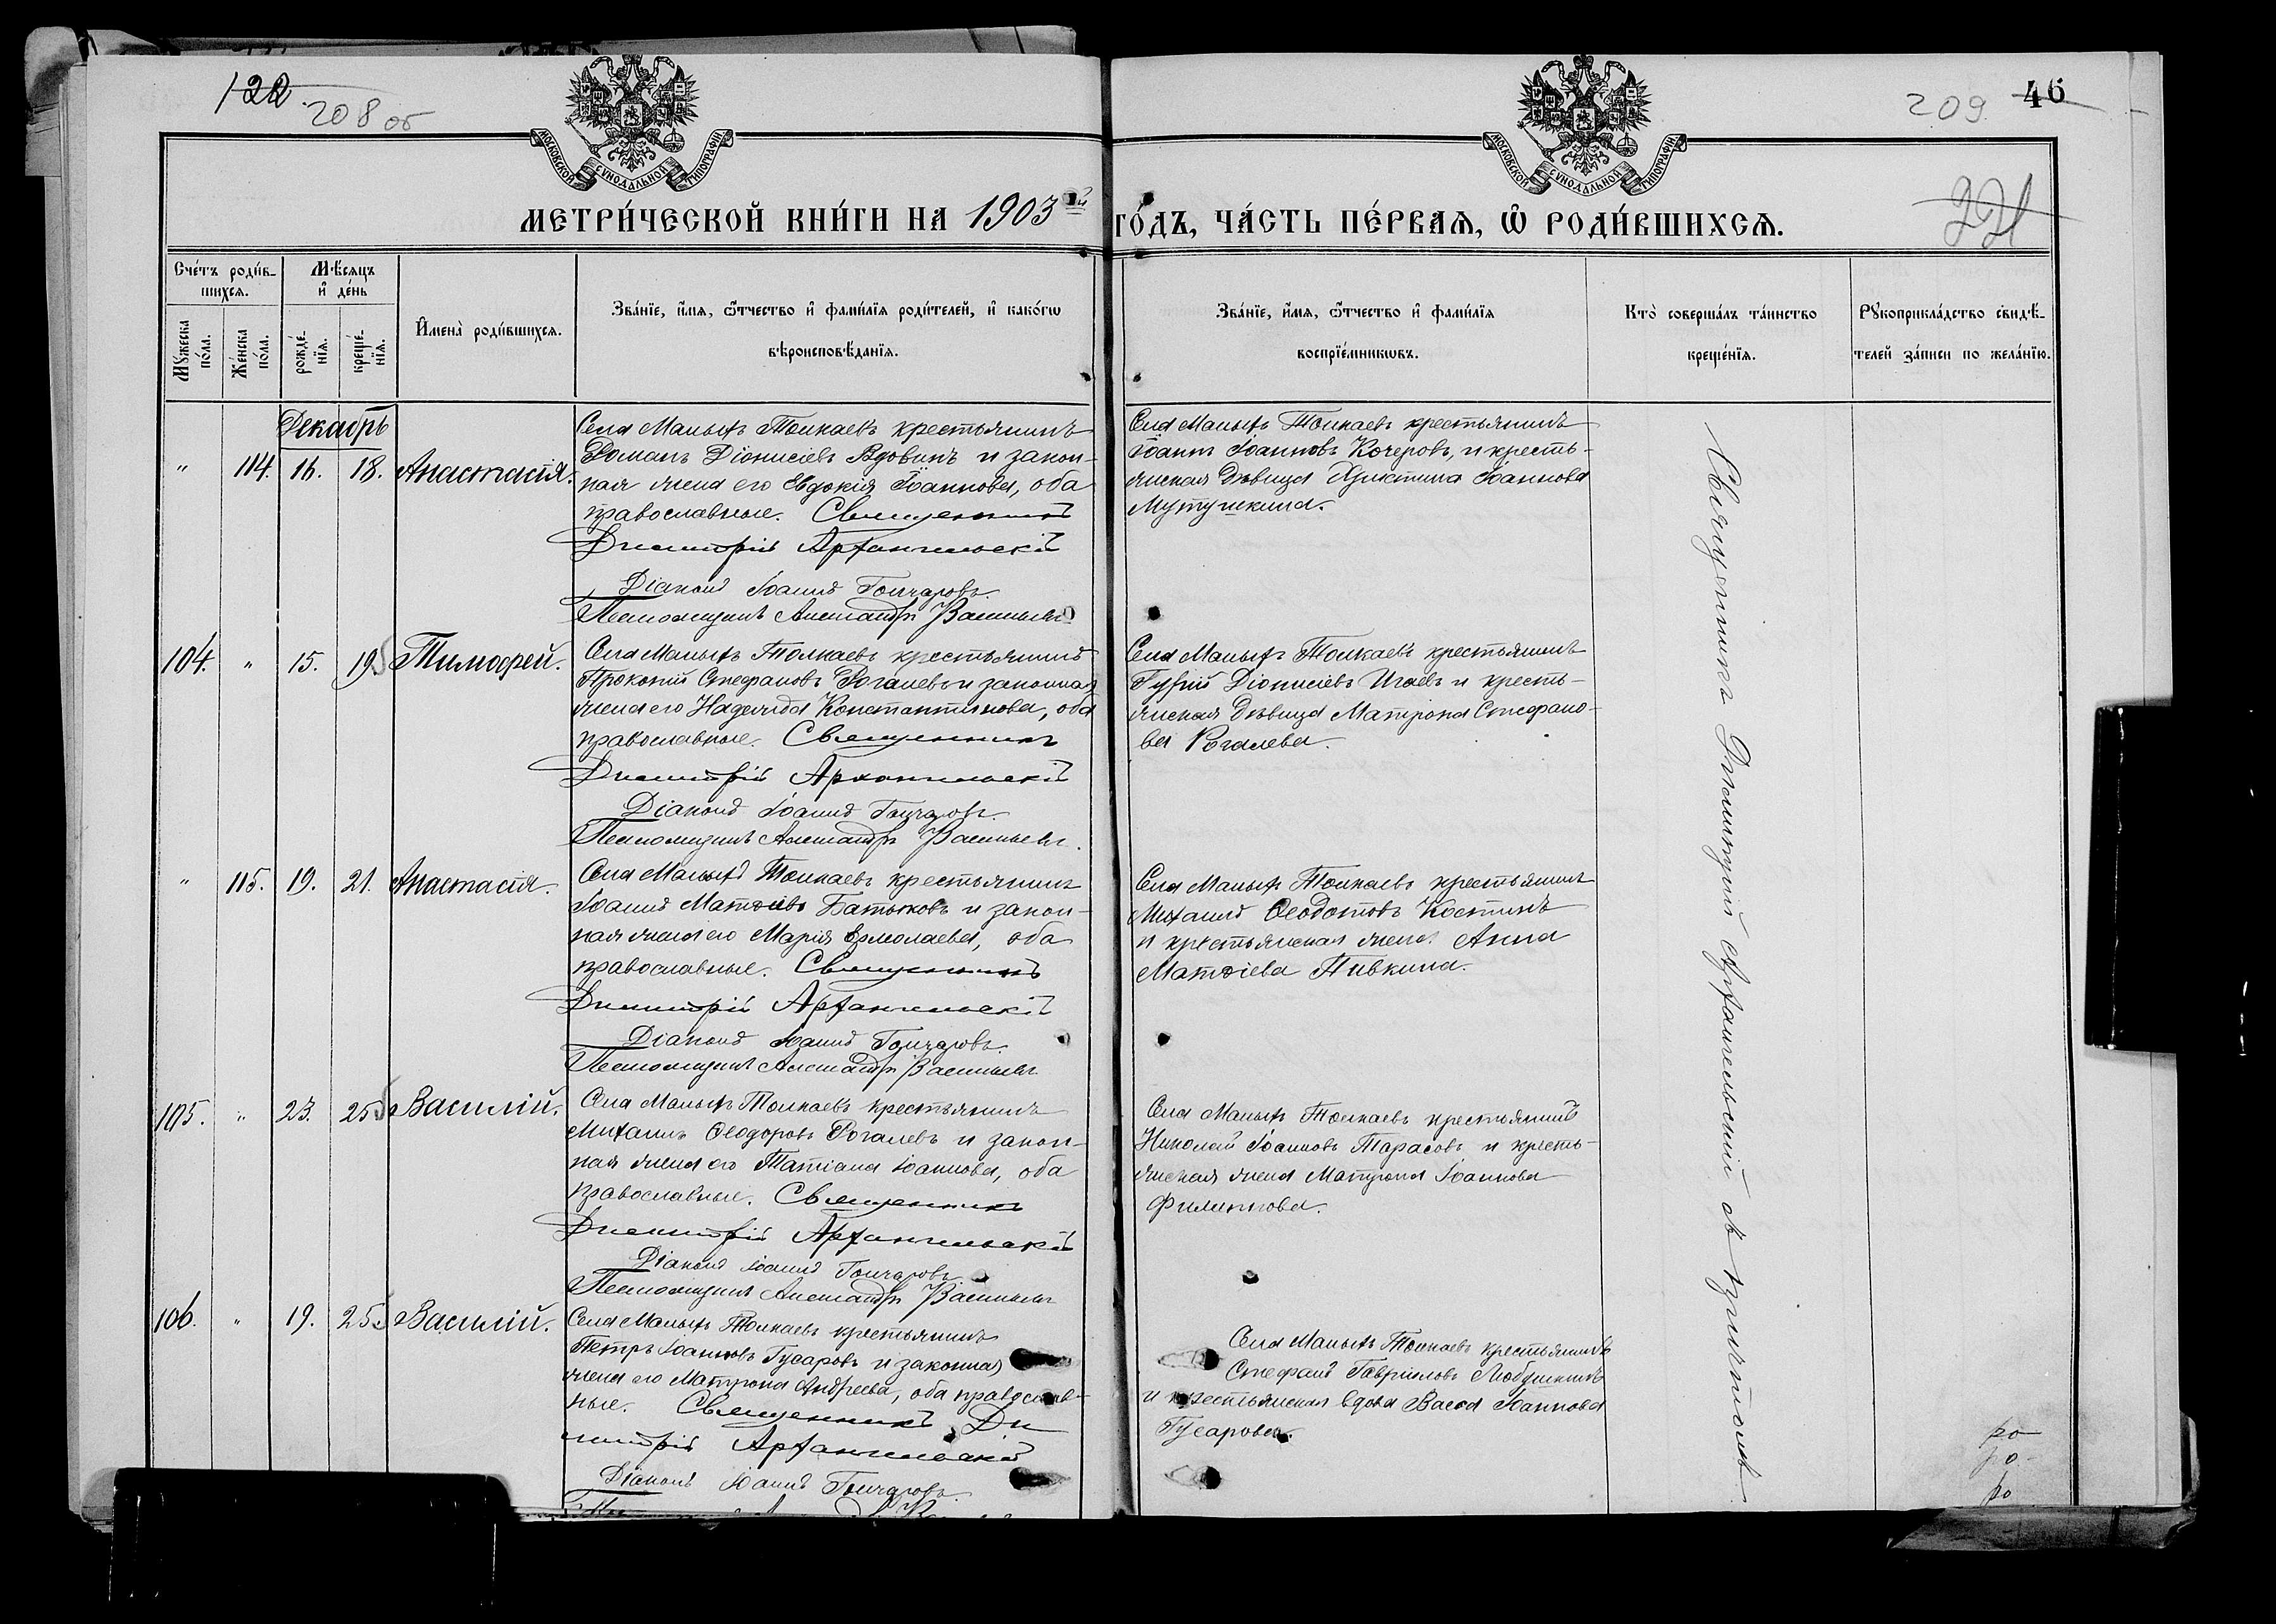 122
208 об
209
46
МОСКОВСКОЙ СѴНОДАЛЬНОЙ ТИПОГРАФІИ
МОСКОВСКОЙ СѴНОДАЛЬНОЙ ТИПОГРАФІИ
МЕТРИ́ЧЕСКОЙ КНИ́ГИ НА 1903ій ГО́ДЪ, ЧА́СТЬ ПЕ́РВАѦ, Ѡ҆ РОДИ́ВШИХСѦ.
Сче́тъ роди́в-
шихсѧ.
Мꙋ́жеска по́ла.
Же́нска по́ла.
Мѣ́сѧцъ
и҆ де́нь
рожде́-
нїѧ.
креще́-
нїѧ.
И҆мена̀ роди́вшихсѧ.
Зва́нїе, и҆́мѧ, ѻ҆́тчество и҆ фами́лїѧ роди́телей, и҆ како́гѡ
вѣроисповѣ́данїѧ.
Зва́нїе, и҆́мѧ, ѻ҆́тчество и҆ фами́лїѧ
воспрїе́мникѡвъ.
Кто̀ соверша́лъ та́инство
креще́нїѧ.
Рꙋкоприкла́дство свидѣ́-
телей за́писи по жела́нїю.
Декабрь
" 114. 16. 18. Анастасія.
Села Малыхъ Толкаевъ крестьянинъ
Романъ Діонисіевъ Вдовинъ и закон-
ная жена его Евдокія Іоаннова, оба
православные. Священникъ
Димитрій Архангельскій
Діаконъ Іоаннъ Гончаровъ.
Псаломщикъ Александръ Васильевъ
Села Малыхъ Толкаевъ крестьянинъ
Іоаннъ Іоанновъ Кочеровъ, и кресть-
янская дѣвица Христина Іоаннова
Мутушкина.
104. " 15. 19. Тимофей.
Села Малыхъ Толкаевъ крестьянинъ
Прокопій Стефановъ Рогалевъ и законная
жена его Надежда Константинова, оба
православные. Священникъ
Димитрій Архангельскій
Діаконъ Іоаннъ Гончаровъ.
Псаломщикъ Александръ Васильевъ.
Села Малыхъ Толкаевъ крестьянинъ
Гурій Діонисіевъ Игаевъ и кресть-
янская дѣвица Матрона Стефано-
ва Рогалева.
" 115. 19. 21. Анастасія.
Села Малыхъ Толкаевъ крестьянинъ
Іоаннъ Матѳіевъ Батьковъ и закон-
ная жена его Марія Ермолаева, оба
православные. Священникъ
Димитрій Архангельскій
Діаконъ Іоаннъ Гончаровъ.
Псаломщикъ Александръ Васильевъ
Села Малыхъ Толкаевъ крестьянинъ
Михаилъ Ѳеодотовъ Костинъ
и крестьянская жена Анна
Матѳіева Пивкина.
105. " 23. 25 Василій.
Села Малыхъ Толкаевъ крестьянинъ
Михаилъ Ѳеодоровъ Рогалевъ и закон-
ная жена его Татіана Іоаннова, оба
православные. Священникъ
Димитрій Архангельскій
Діаконъ Іоаннъ Гончаровъ.
Псаломщикъ Александръ Васильевъ
Села Малыхъ Толкаевъ крестьянинъ
Николай Іоанновъ Тарасовъ и кресть-
янская жена Матрона Іоаннова
Филиппова.
106. " 19. 25. Василій.
Села Малыхъ Толкаевъ крестьянинъ
Петръ Іоанновъ Гусаровъ и законная
жена его Матрона Андреева, оба православ-
ные. Священникъ Ди
митрій Архангельскій
Діаконъ Іоаннъ Гончаровъ.
Села Малыхъ Толкаевъ крестьянинъ
Стефанъ Гавриловъ Любушкинъ
и крестьянская вдова Васса Іоаннова
Гусарова.
Священникъ Димитрій Архангельскій съ причтомъ